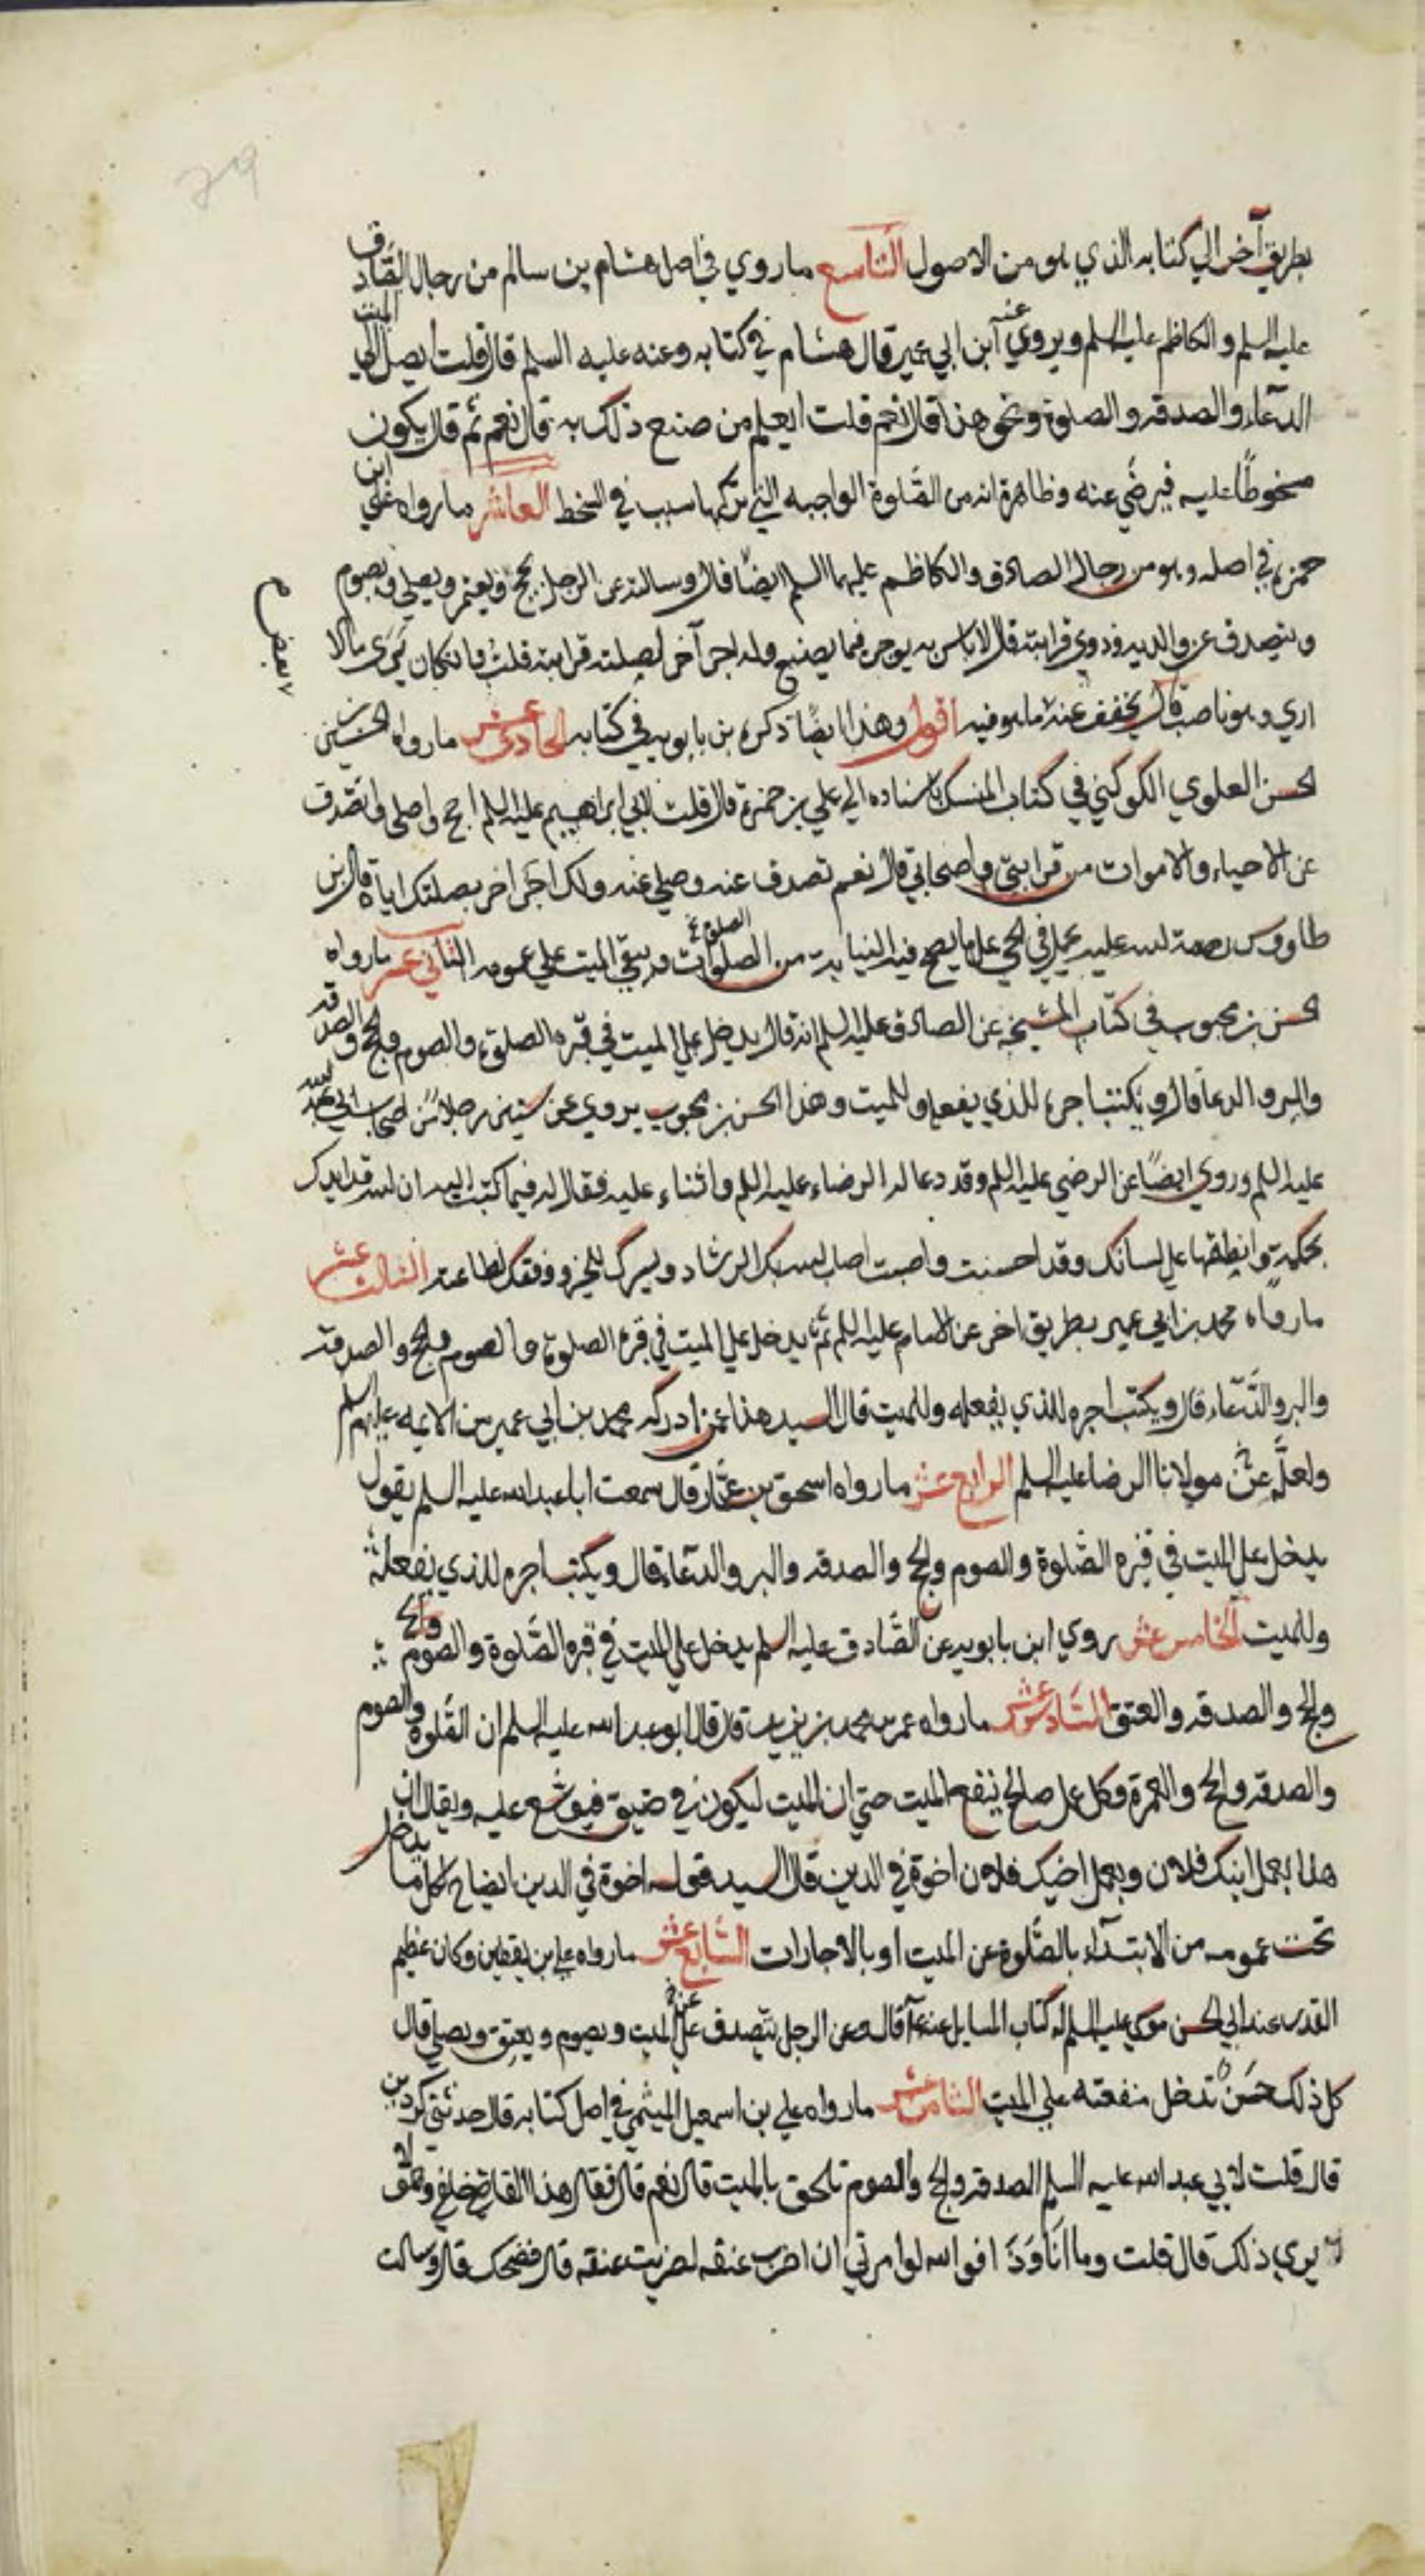 بطريق آخر الي كتابه الذي هو من الاصول التاسع ما روي في اصل هشام بن سالم من رجال الصّادق
عليه السلم والكاظم عليه السلم ويروي عنه ابن ابي عمير قال هشام في كتابه وعنه عليه السلم قال قلت ايصل الي الميت
الدّعاء والصدقه والصلوة ونحو هذا قال نعم قلت ايعلم من صنع ذلك به قال نعم ثم قال يكون
مسخوطًا عليه فيرضي عنه وظاهره انه من الصّلوة الواجبه التي تركها سبب في السخط العاشر ما رواه علي ابن
حمزه في اصله وهو من رجال الصادق والكاظم عليهما السلم ايضًا قال وسالته عن الرجل يحج ويعتمر ويصلي ويصوم
ويتصدق عن والديه وذوي قرابته قال لا باس به يوجر فيما يصنع وله اجر آخر لصلته قرابته قلت وان كان يَرَى ما لا
اري وهو ناصب قال يخفف عنه ما هو فيه اقول وهذا ايضًا ذكره بن بابويه في كتابه الحادي عشر ما رواه الحسين بن
الحسن العلوي الكوكبي في كتاب المنسك باسناده الي علي بن حمزه قال قلت لابي ابراهيم عليه السلم احج واصلي واتصدق
عن الاحياء والاموات من قرابتي واصحابي قال نعم تصدق عنه وصلي عنه ولك اجر اخر بصلتك اياه قال بن
طاووس رحمة الله عليه يحمل في الحي علي ما يصح فيه النيابه من الصلوات ويبقي الميت علي عمومه الثاني عشر ما رواه
الحسن بن محبوب في كتاب المشيخه عن الصادق عليه السلم انه قال يدخل علي الميت في قبره الصلوة والصوم والحج والصدقه
والبر والدعا قال ويكتب اجره للذي يفعله وللميت وهذا الحسن بن محبوب يروي عن ستين رجلا من اصحاب ابي عبد الله
عليه السلم وروي ايضًا عن الرضي عليه السلم وقد دعا له الرضاء عليه السلم واثناء عليه فقال له فيما كتب اليه ان الله قد ايدك
بحكمة وانطقها علي لسانك وقد احسنت واصبت اصاب الله بك الرشاد ويسرك للخير ووفقك لطاعته الثالث عشر
ما رواه محمد بن ابي عمير بطريق اخر عن الامام عليه السلم يدخل علي الميت في قبره الصلوة والصوم والحج والصدقه
والبر والدّعاء قال ويكتب اجره للذي يفعله وللميت قال السيد هذا عمن ادركه محمد بن ابي عمير من الايمه عليهم السلم
ولعلّه عن مولانا الرضا عليه السلم الرابع عشر ما رواه اسحق بن عمّار قال سمعت ابا عبد الله عليه السلم يقول
يدخل علي الميت في قبره الصّلوة والصوم والحج والصدقه والبر والدّعاء قال ويكتب اجره للذي يفعله
وللميت الخامس عشر روي ابن بابويه عن الصّادق عليه السلم يدخل علي الميت في قبره الصّلوة والصوم
والحج والصدقه والعتق السّادس عشر ما رواه عمر بن محمد بن يزيد قال قال ابو عبد الله عليه السلم ان الصّلوة والصوم
والصدقه والحج والعمرة وكل عمل صالح ينفع الميت حتي ان الميت ليكون في ضيق فيوسع عليه ويقال ان
هذا بعمل ابنك فلان وبعمل اخيك فلان اخوة في الدين قال السيد قوله اخوة في الدين ايضاح لكل ما يدخل
تحت عمومه من الابتداء بالصّلوة عن الميت او بالاجارات السّابع عشر ما رواه علي بن يقطين وكان عظيم
القدر عند ابي الحسن موسي عليه السلم له كتاب المسايل عنه قال وعن الرجل يتصدق عن الميت ويصوم ويعتق ويصلي قال
كل ذلك حَسَن تدخل منفعته علي الميت الثامن عشر ما رواه علي بن اسمعيل الميثمي في اصل كتابه قال حدثني كردين
قال قلت لابي عبد الله عليه السلم الصدقه والحج والصوم تلحق بالميت قال نعم قال فقال هذا القاضي خلفي وهو لا
يري ذلك قال قلت وما انا وذا فو الله لو امرتني ان اضرب عنقه لضربت عنقه قال فضحك قال وسالت